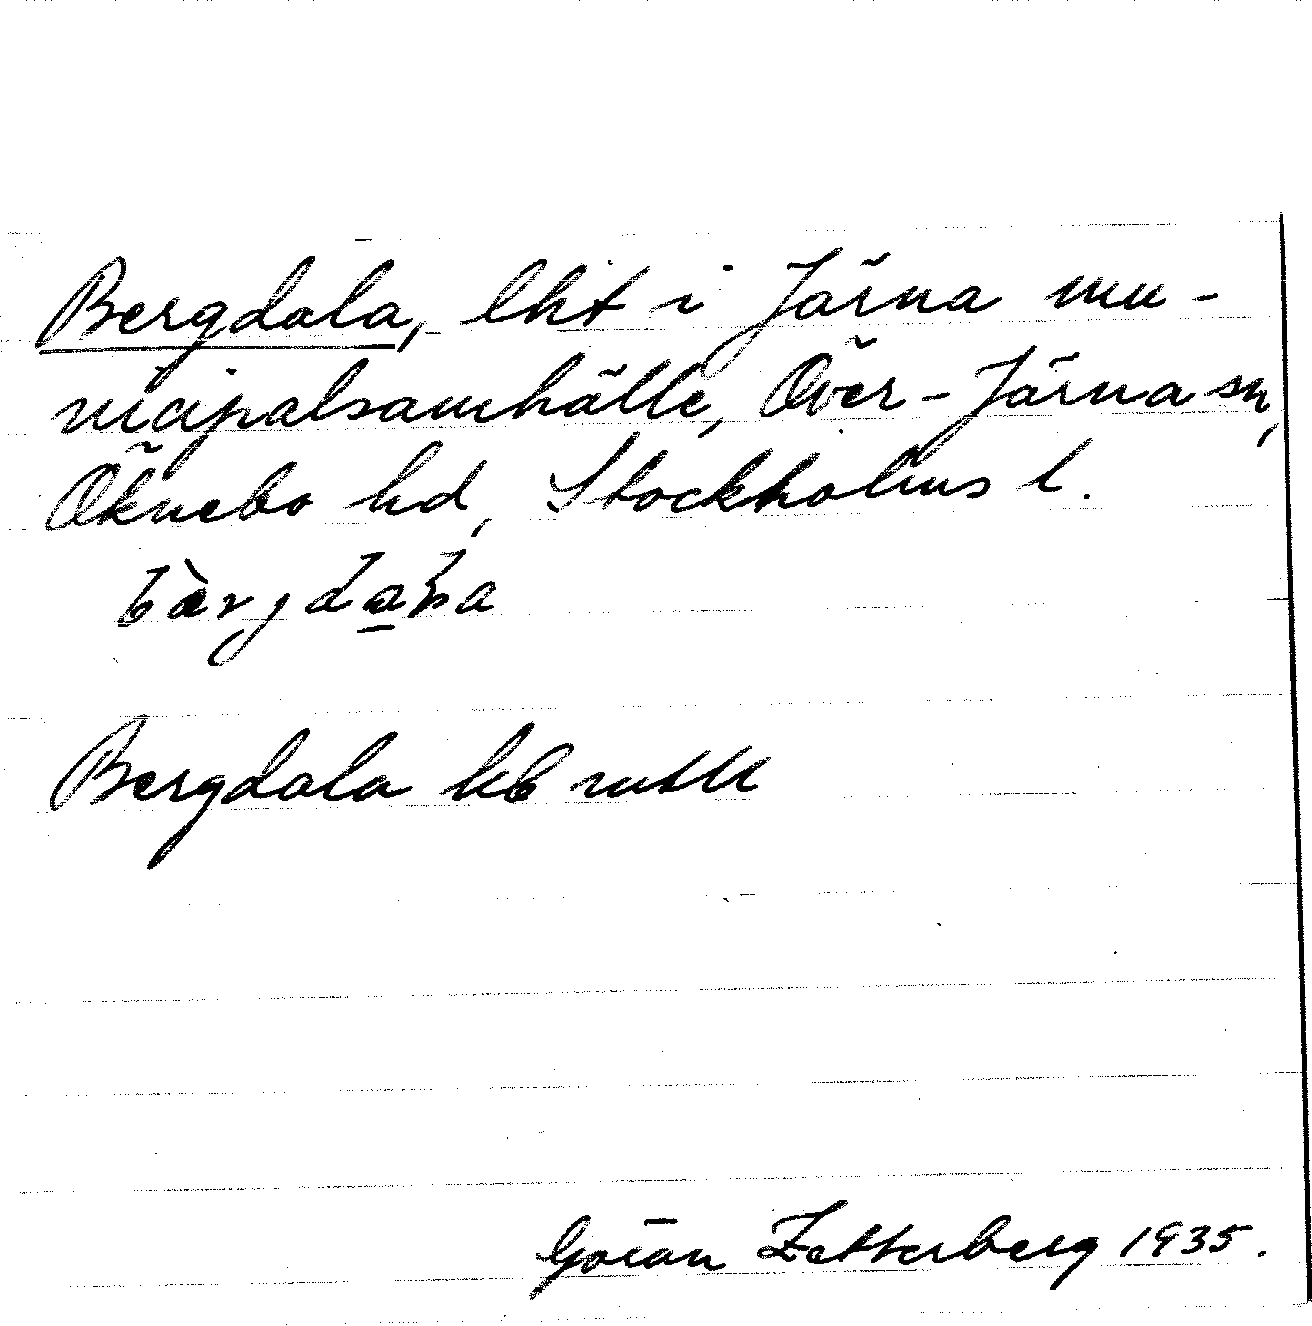 Bergdala, lht i Järna mu-
nicipalsamhälle, Över-Järna sn,
Öknebo hd, Stockholms l.
Bergdala
Göran Zetterberg 1935.